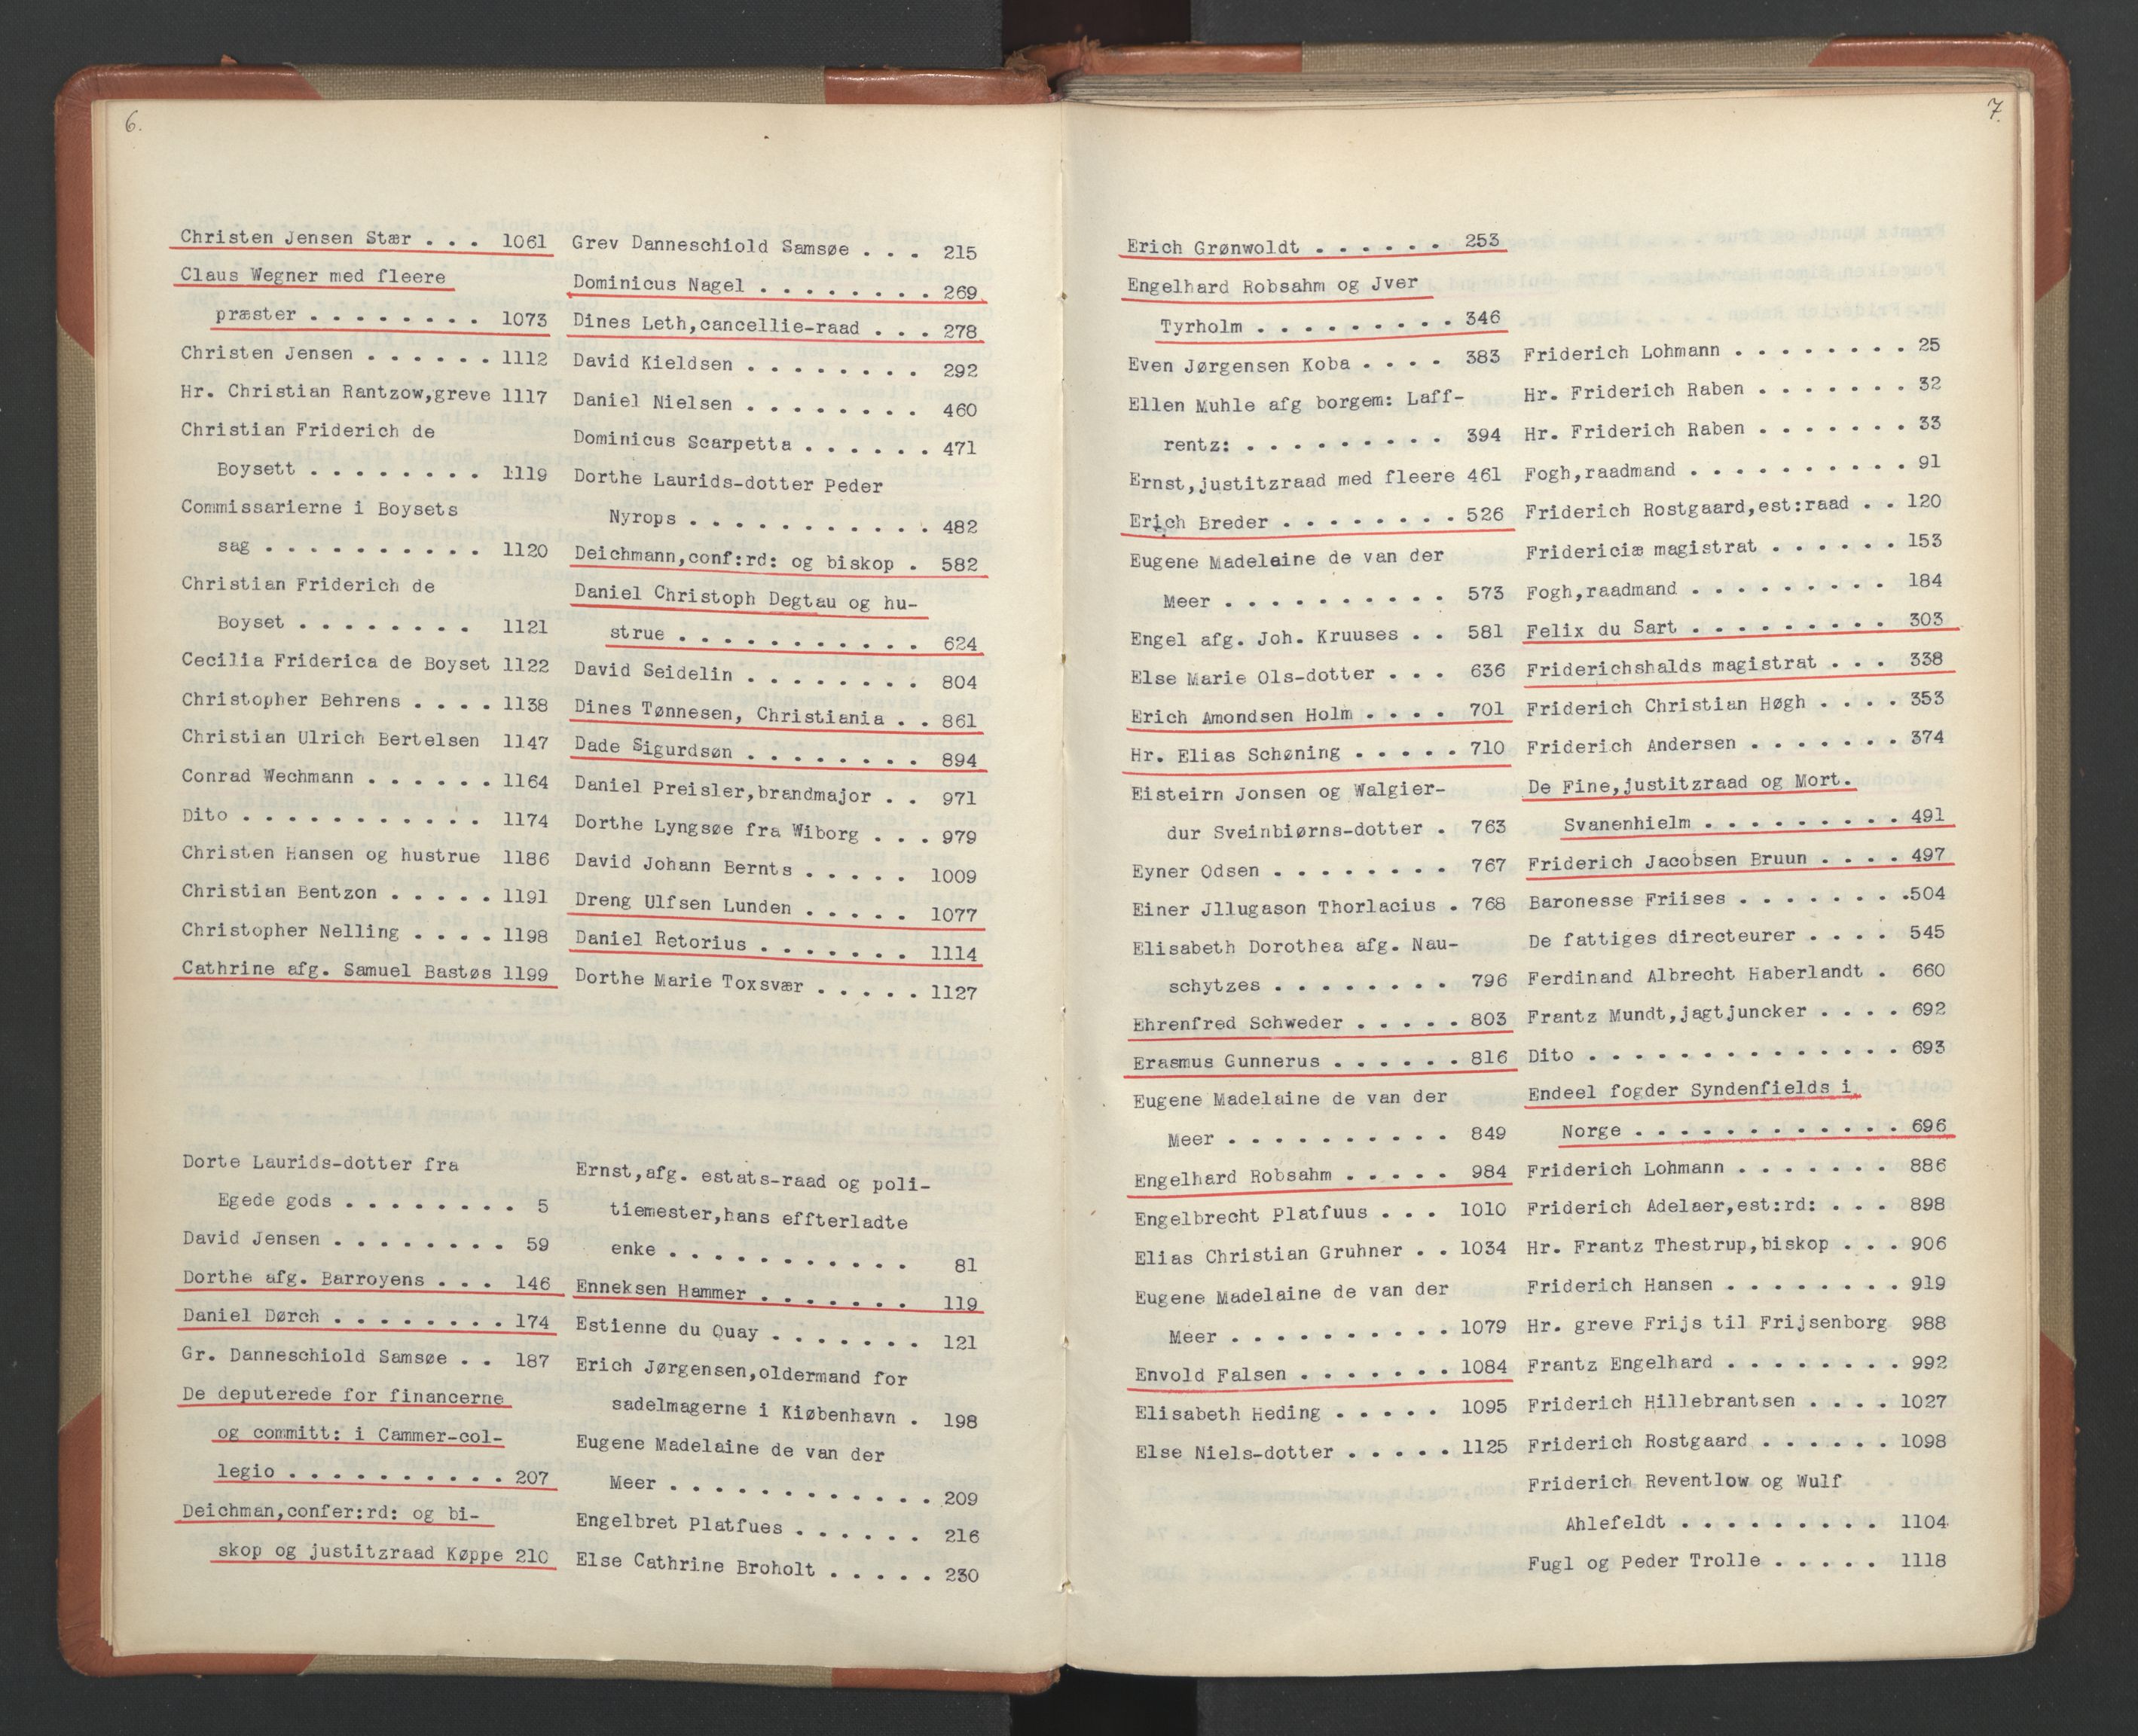 6.
Christen Jensen Stær . . . 1061
Claus Wegner med fleere
præster . . . . . . . . 1073
Christen Jensen . . . . . . 1112
Hr. Christian Rantzow,greve 1117
Christian Friderich de
Boysett . . . . . . . . 1119
Commissarierne i Boysets
sag . . . . . . . . . . 1120
Christian Friderich de
Boyset . . . . . . . . 1121
Cecilia Friderica de Boyset 1122
Christopher Behrens . . . . 1138
Christian Ulrich Bertelsen 1147
Conrad Wechmann . . . . . . 1164
Dito . . . . . . . . . . . 1174
Christen Hansen og hustrue 1186
Christian Bentzon . . . . . 1191
Christopher Nelling . . . . 1198
Cathrine afg. Samuel Bastøs 1199
Dorte Laurids-dotter fra
Egede gods . . . . . . . . 5
David Jensen . . . . . . . . 59
Dorthe afg. Barroyens . . . 146
Daniel Dørch . . . . . . . . 174
Gr. Danneschiold Samsøe . . 187
De deputerede for financerne
og committ: i Cammer-col-
legio . . . . . . . . . . 207
Deichman,confer:rd: og bi-
skop og justitzraad Køppe 210
Grev Danneschiold Samsøe . . . 215
Dominicus Nagel . . . . . . . . 269
Dines Leth,cancellie-raad . . . 278
David Kieldsen . . . . . . . . 292
Daniel Nielsen . . . . . . . . 460
Dominicus Scarpetta . . . . . . 471
Dorthe Laurids-dotter Peder
Nyrops . . . . . . . . . . . 482
Deichmann,conf:rd: og biskop . 582
Daniel Christoph Degtau og hu-
strue . . . . . . . . . . . 624
David Seidelin . . . . . . . . 804
Dines Tønnesen, Christiania . . 861
Dade Sigurdsøn . . . . . . . . 894
Daniel Preisler,brandmajor . . 971
Dorthe Lyngsøe fra Wiborg . . . 979
David Johann Bernts . . . . . 1009
Dreng Ulfsen Lunden . . . . . 1077
Daniel Retorius . . . . . . . 1114
Dorthe Marie Toxsvær . . . . . 1127
Ernst,afg. estats-raad og poli-
tiemester,hans effterladte
enke . . . . . . . . . . 81
Enneksen Hammer . . . . . . . 119
Estienne du Quay . . . . . . . 121
Erich Jørgensen,oldermand for
sadelmagerne i Kiøbenhavn . 198
Eugene Madelaine de van der
Meer . . . . . . . . . . . . 209
Engelbret Platfues . . . . . . 216
Else Cathrine Broholt . . . . . 230
7.
Erich Grønwoldt . . . . . . 253
Engelhard Robsahm og Jver
Tyrholm . . . . . . . . . 346
Even Jørgensen Koba . . . . 383
Ellen Muhle afg borgem: Laff-
rentz: . . . . . . . . . 394
Ernst,justitzraad med fleere 461
Erich Breder . . . . . . . . 526
Eugene Madeleine de van der
Meer . . . . . . . . . . 573
Engel afg. Joh. Kruuses . . 581
Else Marie Ols-dotter . . . 636
Erich Amondsen Holm . . . . 701
Hr. Elias Schøning . . . . . 710
Eisteirn Jonsen og Walgier-
dur Sveinbiørns-dotter . 763
Eyner Odsen . . . . . . . . 767
Einer Jllugason Thorlacius . 768
Elisabeth Dorothea afg. Nau-
schytzes . . . . . . . . 796
Ehrenfred Schweder . . . . . 803
Erasmus Gunnerus . . . . . . 816
Eugene Madelaine de van der
Meer . . . . . . . . . . 849
Engelhard Robsahm . . . . . 984
Engelbrecht Platfuus . . . 1010
Elias Christian Gruhner . . 1034
Eugene Madelaine de van der
Meer . . . . . . . . . . 1079
Envold Falsen . . . . . . . 1084
Elisabeth Heding . . . . . 1095
Else Niels-dotter . . . . . 1125
Friderich Lohmann . . . . . . . . 25
Hr. Friderich Raben . . . . . . . 32
Hr. Friderich Raben . . . . . . . 33
Fogh,raadmand . . . . . . . . . . 91
Friderich Rostgaard,est:raad . . 120
Fridericiæ magistrat . . . . . . 153
Fogh,raadmand . . . . . . . . . 184
Felix du Sart . . . . . . . . . 303
Friderichshalds magistrat . . . 338
Friderich Christian Høgh . . . . 353
Friderich Andersen . . . . . . . 374
De Fine,justitzraad og Mort.
Svanenhielm . . . . . . . . . 491
Friderich Jacobsen Bruun . . . . 497
Baronesse Friises . . . . . . . .504
De fattiges directeurer . . . . 545
Ferdinand Albrecht Haberlandt . 660
Frantz Mundt,jagtjuncker . . . . 692
Dito . . . . . . . . . . . . . . 693
Endeel fogder Syndenfields i
Norge . . . . . . . . . . . . 696
Friderich Lohmann . . . . . . . 886
Friderich Adelaer,est:rd: . . . 898
Hr. Frantz Thestrup,biskop . . . 906
Friderich Hansen . . . . . . . . 919
Hr. greve Frijs til Frijsenborg 988
Frantz Engelhard . . . . . . . . 992
Friderich Hillebrantsen . . . . 1027
Friderich Rostgaard . . . . . . 1098
Friderich Reventlow og Wulf
Ahlefeldt . . . . . . . . . 1104
Fugl og Peder Trolle . . . . . 1118